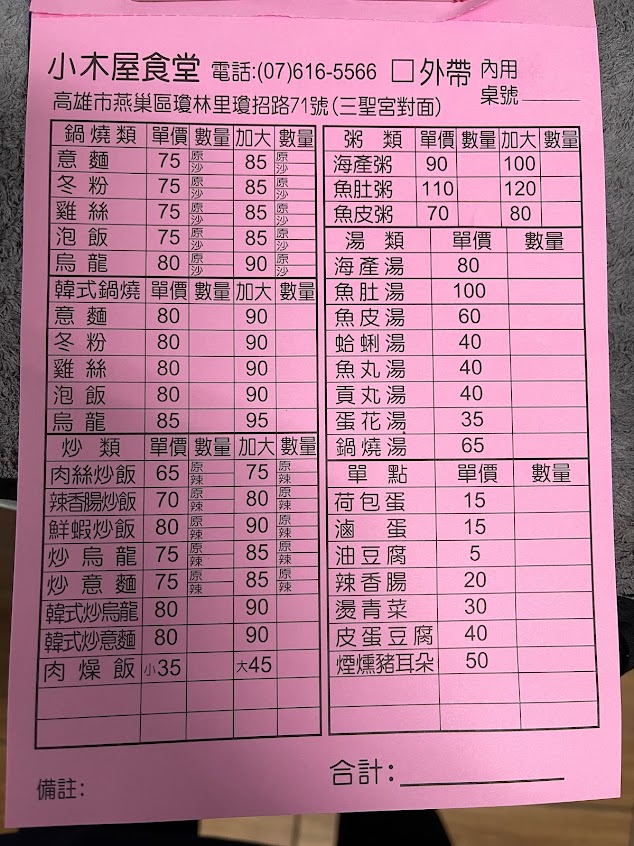 小木屋食堂 電話:(07)616-5566 □外帶 內用 桌號
高雄市燕巢區瓊林里瓊招路71號(三聖宮對面)
鍋燒類 單價 數量 加大 數量
意麵 75 原 沙 85 原 沙
冬粉 75 原 沙 85 原 沙
雞絲 75 原 沙 85 原 沙
泡飯 75 原 沙 85 原 沙
烏龍 80 原 沙 90 原 沙
韓式鍋燒 單價 數量 加大 數量
意麵 80 90
冬粉 80 90
雞絲 80 90
泡飯 80 90
烏龍 85 95
炒類 單價 數量 加大 數量
肉絲炒飯 65 原 辣 75 原 辣
辣香腸炒飯 70 原 辣 80 原 辣
鮮蝦炒飯 80 原 辣 90 原 辣
炒烏龍 75 原 辣 85 原 辣
炒意麵 75 原 辣 85 原 辣
韓式炒烏龍 80 90
韓式炒意麵 80 90
肉燥飯 小35 大45
粥類 單價 數量 加大 數量
海產粥 90 100
魚肚粥 110 120
魚皮粥 70 80
湯類 單價 數量
海產湯 80
魚肚湯 100
魚皮湯 60
蛤蜊湯 40
魚丸湯 40
貢丸湯 40
蛋花湯 35
鍋燒湯 65
單點 單價 數量
荷包蛋 15
滷蛋 15
油豆腐 5
辣香腸 20
燙青菜 30
皮蛋豆腐 40
煙燻豬耳朵 50
備註:
合計: